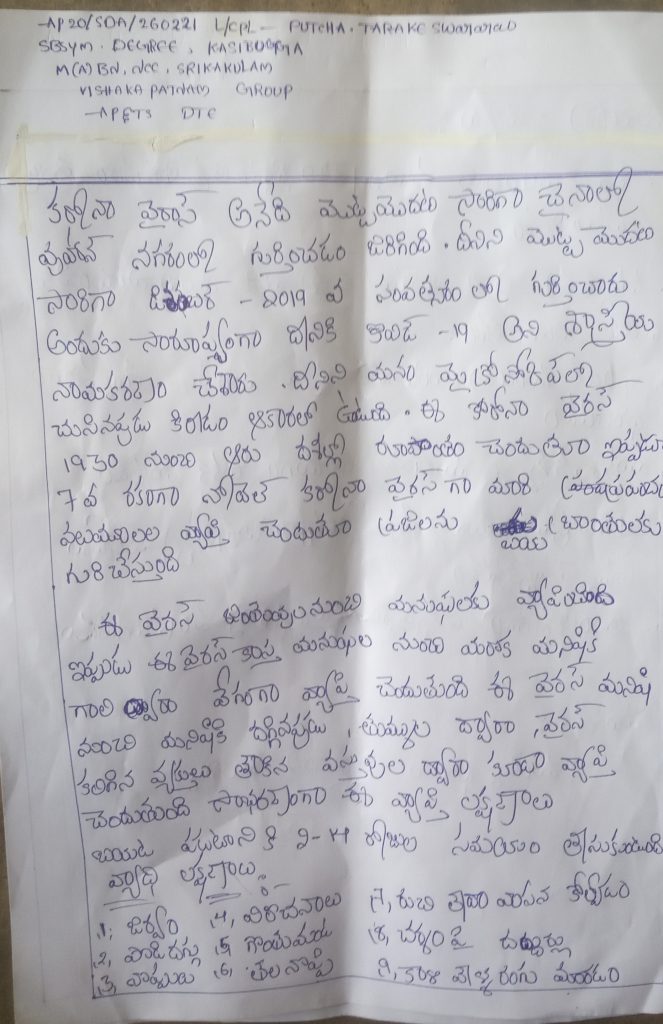 AP20/SDA/260221 L/CPL- PUTCHA. TARAKESwararao
SBSYM. DEGREE, KASIBUGGA
M(A)BN, NCC, SRIKAKULAM
VISHAKAPATNAM GROUP
-AP&TS DTE
కరోనా వైరాస్ అనేది మొట్టమొదట సారిగా చైనాలో
వుహాన్ నగరంలో గుర్తించడం జరిగింది. దీనిని మొట్ట మొదట
సారిగా డిసెంబర్ - 2019 వ సంవత్సరం లో గుర్తించారు
అందుకు సారూప్యంగా దీనికి కొవిడ్ -19 అని శాస్త్రీయ
నామకరణం చేశారు. దీనిని మనం మైక్రో స్కోప్‌లో
చుసినపుడు కిరీటం ఆకారంలో ఉంటుంది. ఈ కరోనా వైరస్
1930 నుంచి ఆరు దశల్లో రూపాంతరం చెందుతూ ఇప్పుడు
7వ రకంగా నోవెల్ కరోనా వైరస్ గా మారి
పలుమూలల వ్యాప్తి చెందుతూ ప్రజలను భయ బ్రాంతులకు
గురిచేస్తుంది
ఈ వైరస్ జంతువులనుంచి మనుషులకు వ్యాపించింది
ఇప్పుడు ఈ వైరస్ కాస్త మనుషుల నుంచి మరొక మనిషికి
గాలి ద్వారా వేగంగా వ్యాప్తి చెందుతుంది ఈ వైరస్ మనిషి
నుంచి మనిషికి దగ్గినపుడు, తుమ్ముల ద్వారా, వైరస్
కలిగిన వ్యక్తులు తాకిన వస్తువుల ద్వారా కూడా వ్యాప్తి
చెందుతుంది సాధారణంగా ఈ వ్యాప్తి లక్షణాలు
బయట పడటానికి 2-14 రోజుల సమయం తీసుకుంటుంది
వ్యాధి లక్షణాలు:-
1, జ్వరం 4, విరోచనాలు 7, రుచి త్వరా వాసన కోల్పోడం
2, పొడిదగ్గు 5, గొంతునొప్పి 8, చర్మం పై దద్దుర్లు
3, వాంతులు 6, తల నొప్పి 9, కాలి వేళ్ళ రంగు మారడం